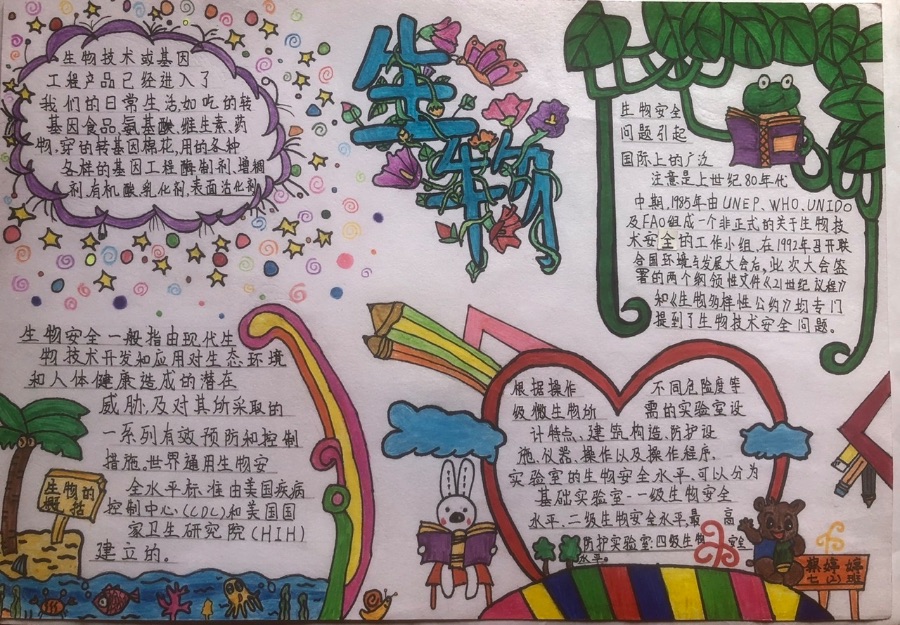 生物技术或基因
工程产品已经进入了
我们的日常生活如吃的转
基因食品、氨基酸、维生素、药
物,穿的转基因棉花,用的各种
各样的基因工程酶制剂、增稠
剂,有机酸、乳化剂、表面活化剂
生物
生物安全
问题引起
国际上的广泛
注意是上世纪80年代
中期,1985年由UNEP、WHO、UNIDO
及FAO组成一个非正式的关于生物技
术安全的工作小组,在1992年召开联
合国环境与发展大会后,此次大会签
署的两个纲领性文件《21世纪议程》
和《生物多样性公约》均专门
提到了生物技术安全问题。
生物安全一般指由现代生
物技术开发和应用对生态环境
和人体健康造成的潜在
威胁,及对其所采取的
一系列有效预防和控制
措施。世界通用生物安
全水平标准由美国疾病
控制中心(CDC)和美国国
家卫生研究院(HIH)
建立的。
生物的
概括
根据操作 不同危险度等
级微生物所 需的实验室设
计特点、建筑构造、防护设
施、仪器、操作以及操作程序,
实验室的生物安全水平,可以分为
基础实验室-一级生物安全
水平、二级生物安全水平,最 高
防护实验室:四级生物 安全
水平。
婷婷
七 班